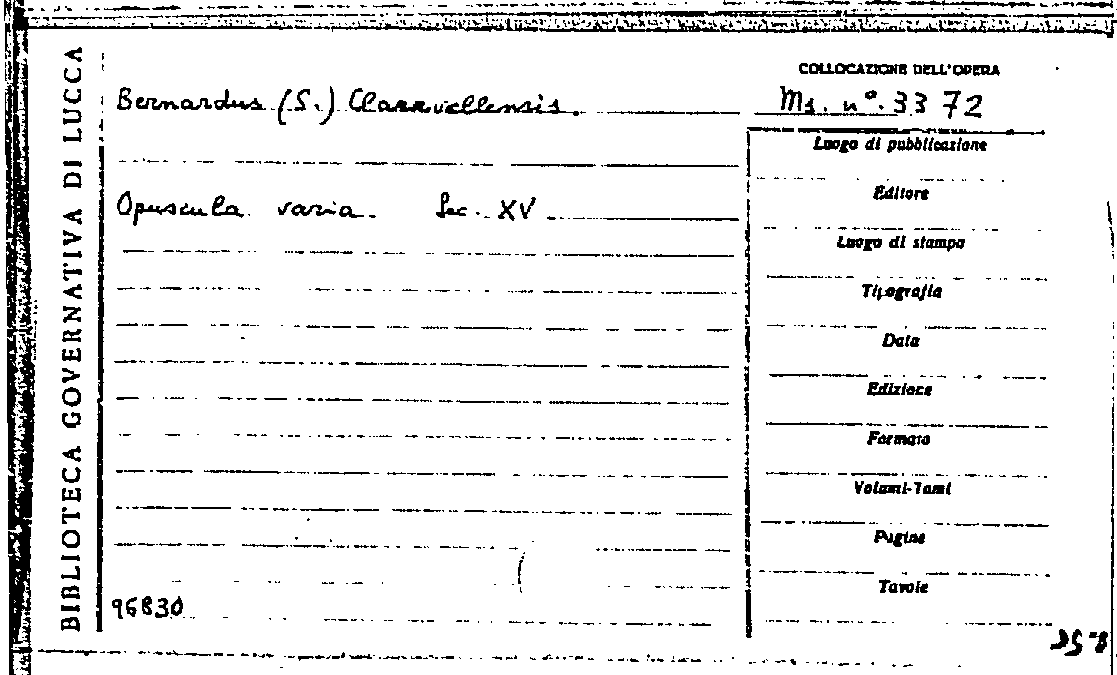 BIBLIOTECA GOVERNATIVA DI LUCCA
Bernardus (S.) Claravellensis.
Opuscula varia. Sec. XV
96830
COLLOCAZIONE DELL'OPERA
Ms. nº. 3372
Luogo di pubblicazione
Editore
Luogo di stampa
Tipografia
Data
Edizione
Formato
Volumi-Tomi
Pagine
Tavole